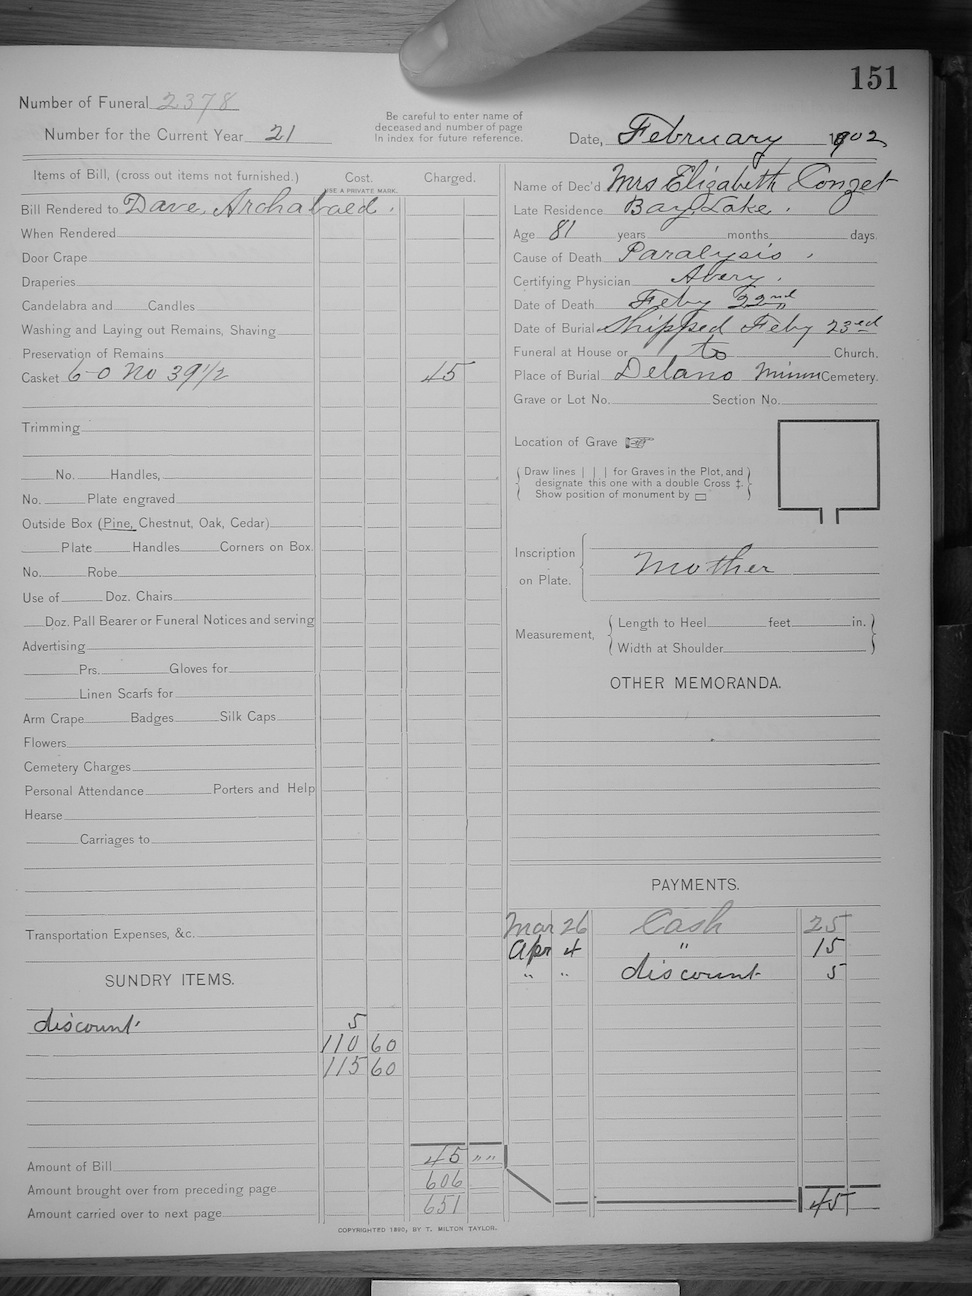 151
Number of Funeral 2378
Number for the Current Year 21
Be careful to enter name of
deceased and number of page
in index for future reference.
Date, February 1902
Items of Bill, (cross out items not furnished.) Cost. Charged.
USE A PRIVATE MARK.
Bill Rendered to Dave. Archabaed.
When Rendered
Door Crape
Draperies
Candelabra and Candles
Washing and Laying out Remains, Shaving
Preservation of Remains
Casket 6-0 No 39 1/2 45
Trimming
No. Handles,
No. Plate engraved
Outside Box (Pine, Chestnut, Oak, Cedar)
Plate Handles Corners on Box.
No. Robe
Use of Doz. Chairs
Doz. Pall Bearer or Funeral Notices and serving
Advertising
Prs. Gloves for
Linen Scarfs for
Arm Crape Badges Silk Caps
Flowers
Cemetery Charges
Personal Attendance Porters and Help
Hearse
Carriages to
Transportation Expenses, &c.
SUNDRY ITEMS.
discount. 5
110 60
115 60
Amount of Bill 45 " "
Amount brought over from preceding page 606
Amount carried over to next page 651
Name of Dec'd Mrs Elizabeth Conzet
Late Residence Bay Lake.
Age 81 years months days.
Cause of Death Paralysis.
Certifying Physician Avery.
Date of Death Feby 22nd
Date of Burial Shipped Feby 23ed
Funeral at House or to Church.
Place of Burial Delano Minn Cemetery.
Grave or Lot No. Section No.
Location of Grave ☞
Draw lines | | | for Graves in the Plot, and
designate this one with a double Cross ‡.
Show position of monument by ▭
Inscription
on Plate. Mother
Measurement, Length to Heel feet in.
Width at Shoulder
OTHER MEMORANDA.
PAYMENTS.
Mar 26 Cash 25
Apr 4 " 15
" " discount 5
45
COPYRIGHTED 1890, BY T. MILTON TAYLOR.